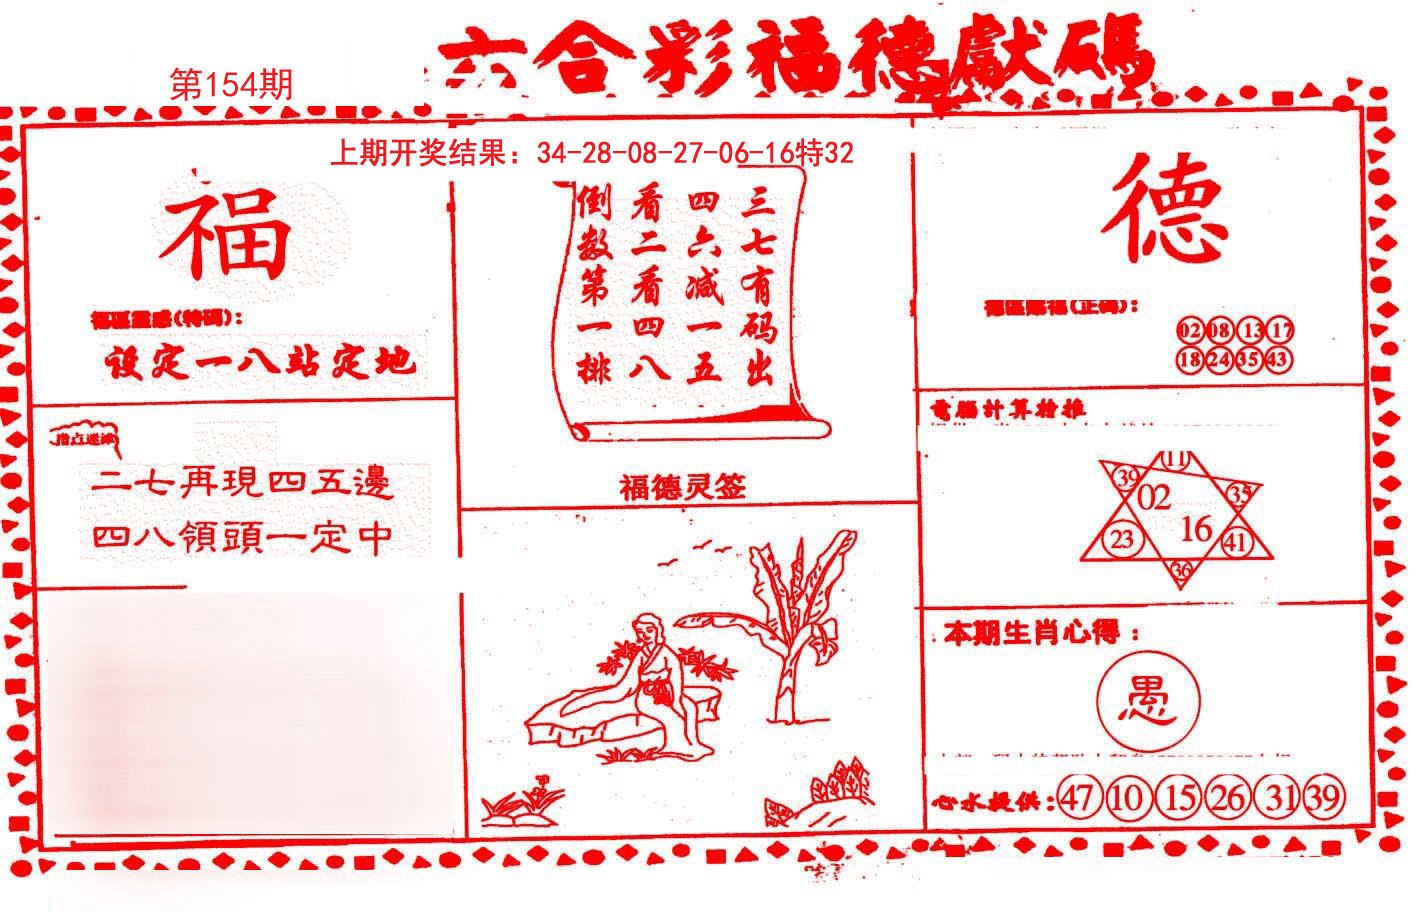 六合彩福德獻碼
第154期
上期开奖结果：34-28-08-27-06-16特32
福
福區靈感(特碼)：
设定一八站定地
指点迷津
二七再現四五邊
四八領頭一定中
三七有码出
四六减一五
看二看四八
倒数第一排
福德灵签
德
德區賜福(正碼)：
02 08 13 17
18 24 35 43
電腦計算特推
11
39 02 35
23 16 41
36
本期生肖心得：
愚
心水提供：47 10 15 26 31 39